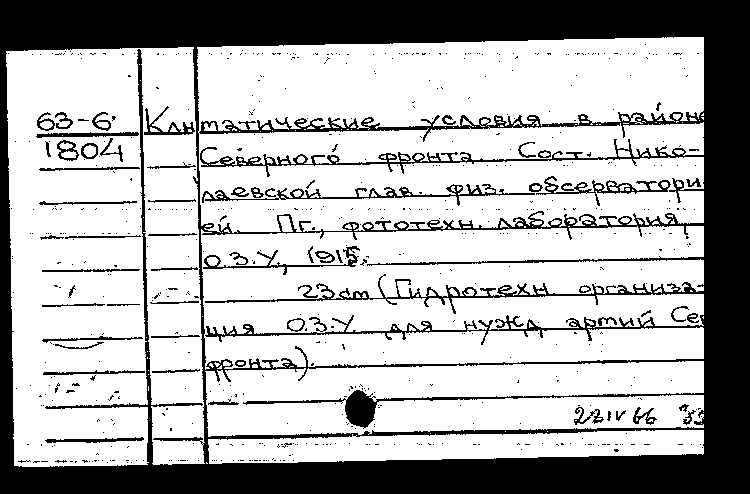 63-6 Климатические условия в районе
1804 Северного фронта. Сост. Нико-
лаевской глав. физ. обсерватори-
ей. Пг., фототехн. лаборатория
О.З.У., 1915.
23 cm (Гидротехн организа-
ция О.З.У. для нужд армий Сев
фронта).
22 IV 66 33